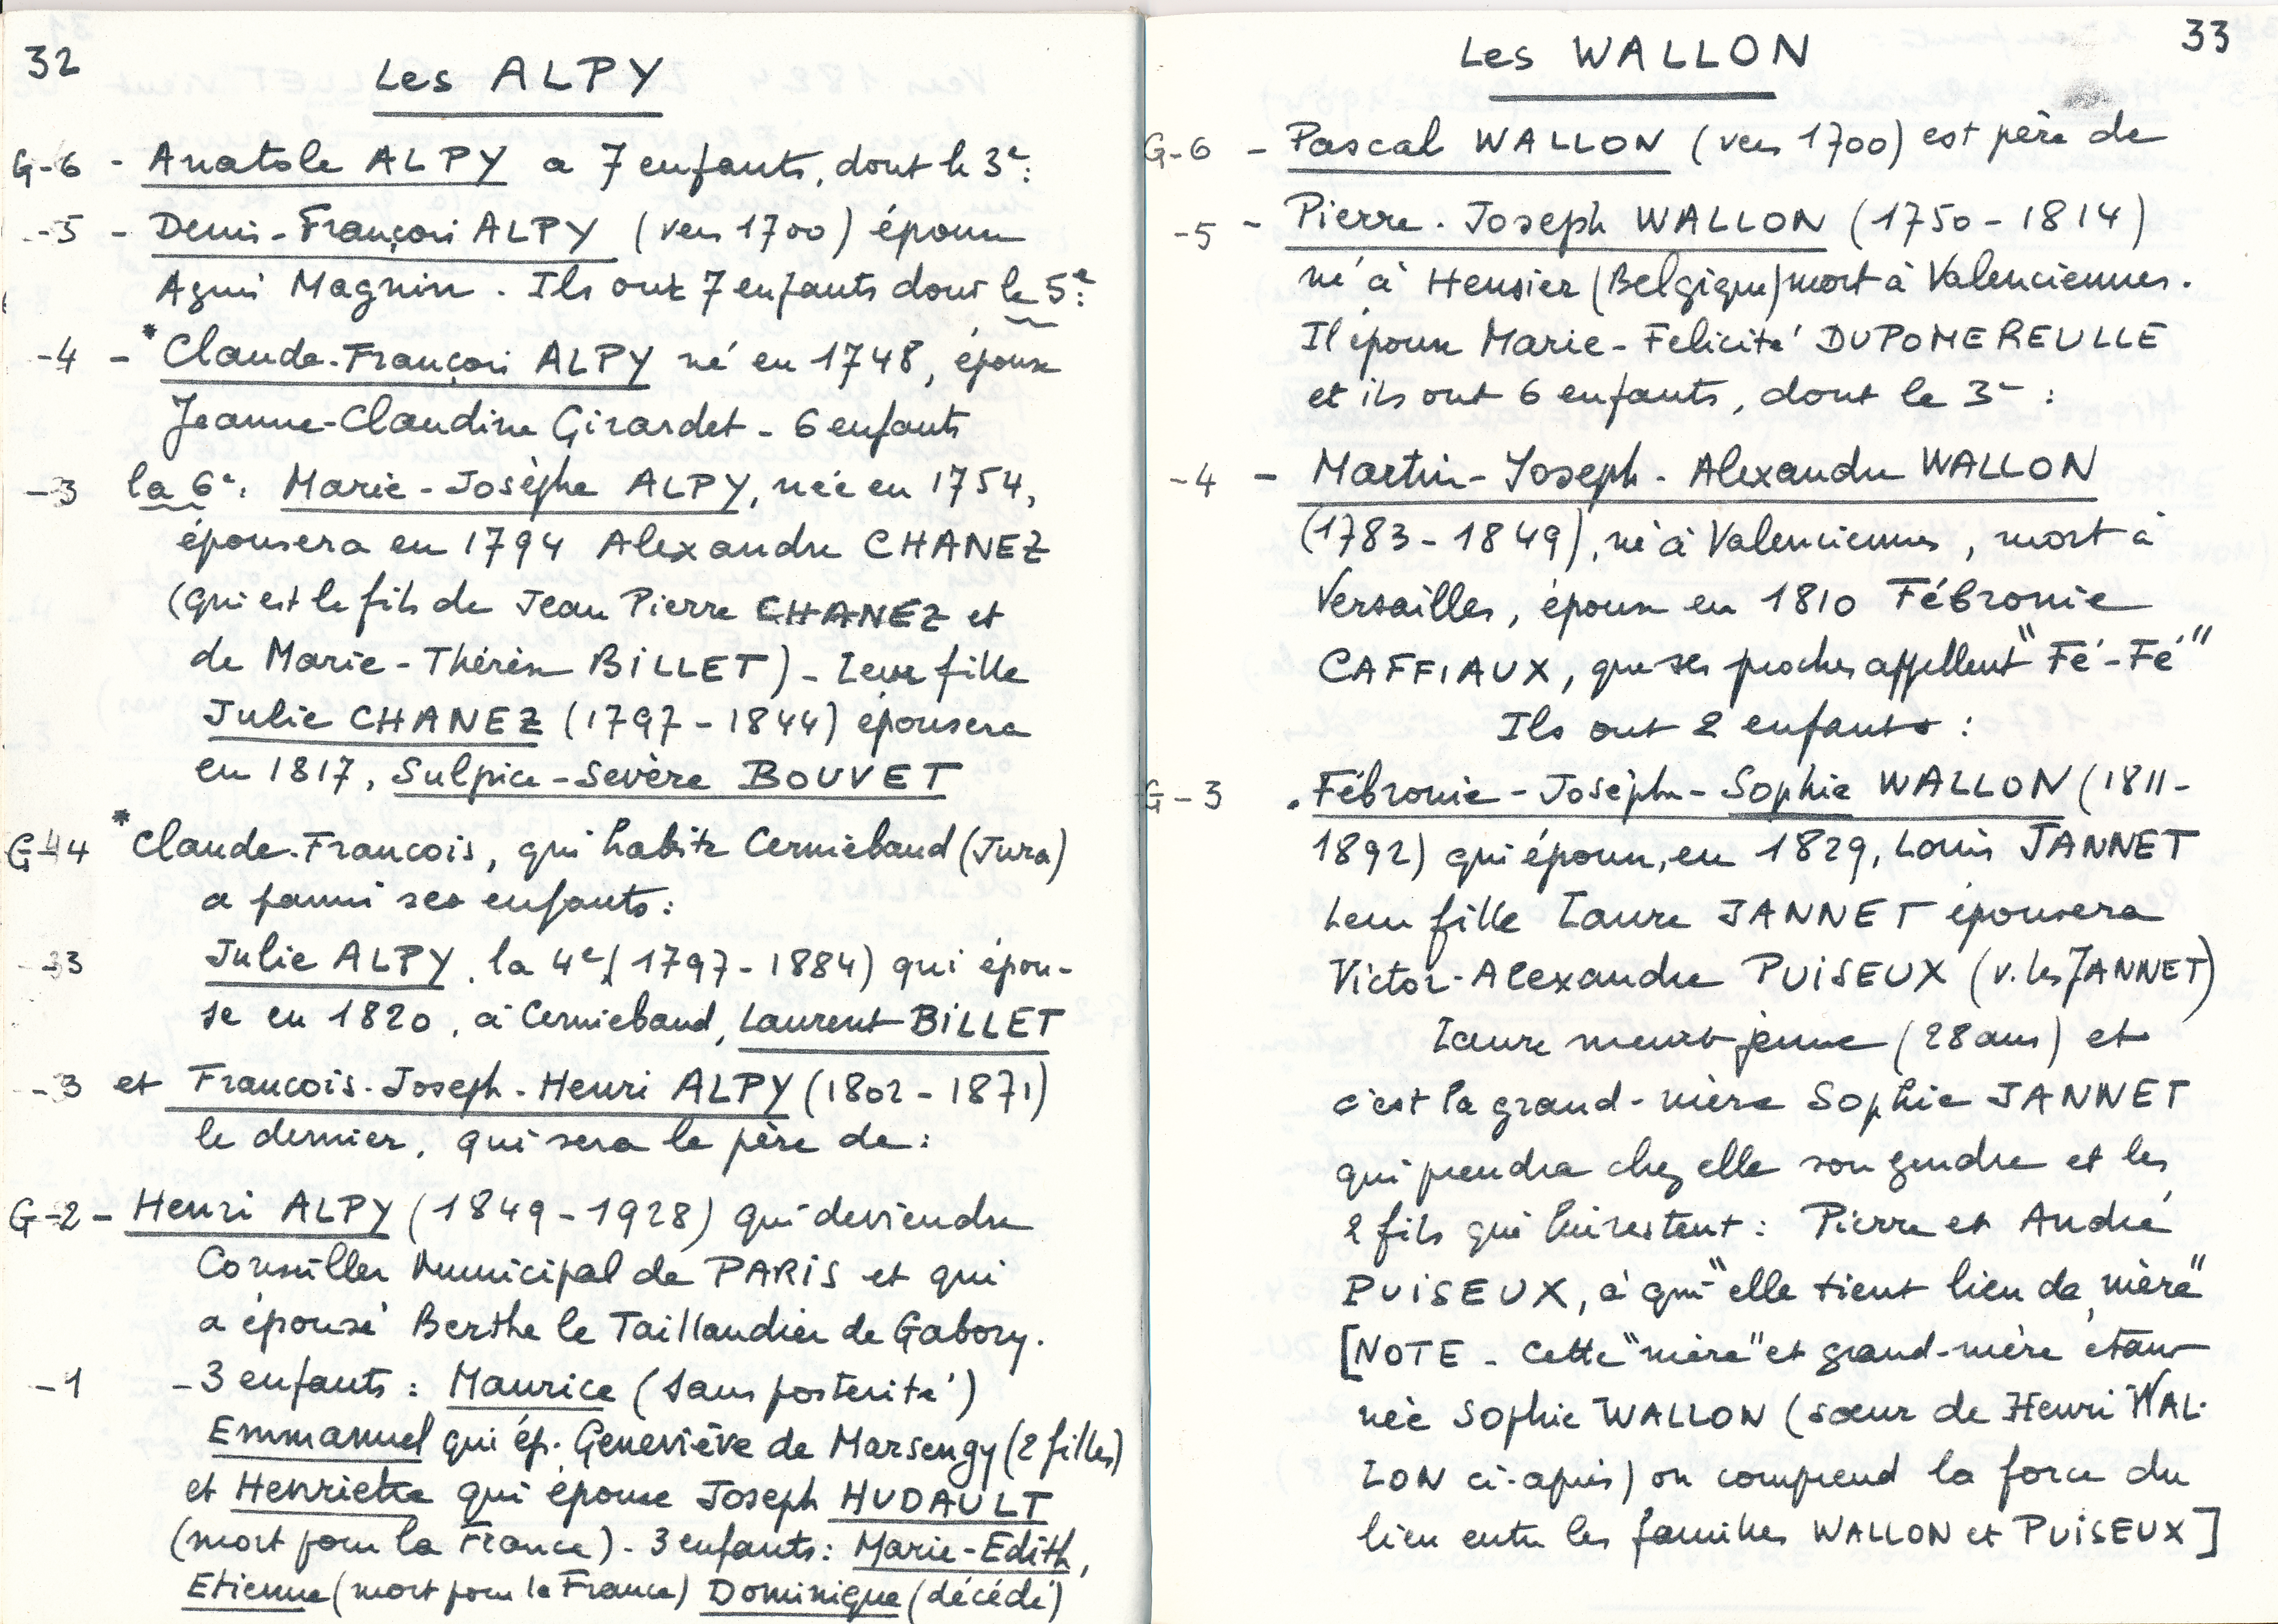 32
Les ALPY
G-6 - Anatole ALPY a 7 enfants, dont le 3e:
-5 - Denis-François ALPY (vers 1700) épouse
Agnès Magnin. Ils ont 7 enfants dont le 5e:
-4 - *Claude-François ALPY né en 1748, épouse
Jeanne-Claudine Girardet - 6 enfants
-3 la 6e, Marie-Josèphe ALPY, née en 1754,
épousera en 1794 Alexandre CHANEZ
(qui est le fils de Jean Pierre CHANEZ et
de Marie-Thérèse BILLET) - Leur fille
Julie CHANEZ (1797-1844) épousera
en 1817, Sulpice-Sevère BOUVET
G-4 *Claude-Francois, qui habite Cerniébaud (Jura)
a parmi ses enfants:
-3 Julie ALPY, la 4e (1797-1884) qui épou-
se en 1820, à Cerniebaud, Laurent BILLET
-3 et Francois-Joseph-Henri ALPY (1802-1871)
le dernier, qui sera le père de:
G-2 - Henri ALPY (1849-1928) qui deviendra
Conseiller Municipal de PARIS et qui
a épousé Berthe le Taillandier de Gabory.
-1 - 3 enfants: Maurice (sans postérité)
Emmanuel qui ép. Geneviève de Marsengy (2 filles)
et Henriette qui épouse Joseph HUDAULT
(mort pour la France). 3 enfants: Marie-Edith,
Etienne (mort pour la France) Dominique (décédé)
33
Les WALLON
G-6 - Pascal WALLON (vers 1700) est père de
-5 - Pierre-Joseph WALLON (1750-1814)
né à Hensier (Belgique) mort à Valenciennes.
Il épouse Marie-Felicité DUPOMEREULLE
et ils ont 6 enfants, dont le 3e:
-4 - Martin-Joseph-Alexandre WALLON
(1783-1849), né à Valenciennes, mort à
Versailles, épouse en 1810 Fébronie
CAFFIAUX, que ses proches appellent "Fé-Fé"
Ils ont 2 enfants:
G-3 . Fébronie-Josèphe-Sophie WALLON (1811-
1892) qui épouse, en 1829, Louis JANNET
Leur fille Laure JANNET épousera
Victor-Alexandre PUISEUX (v. les JANNET)
Laure meurt jeune (28 ans) et
c'est la grand-mère Sophie JANNET
qui prendra chez elle son gendre et les
2 fils qui lui restent: Pierre et André
PUISEUX, à qui "elle tient lieu de mère"
[NOTE - Cette "mère" et grand-mère étant
née Sophie WALLON (sœur de Henri WAL-
LON ci-après) on comprend la force du
lien entre les familles WALLON et PUISEUX]